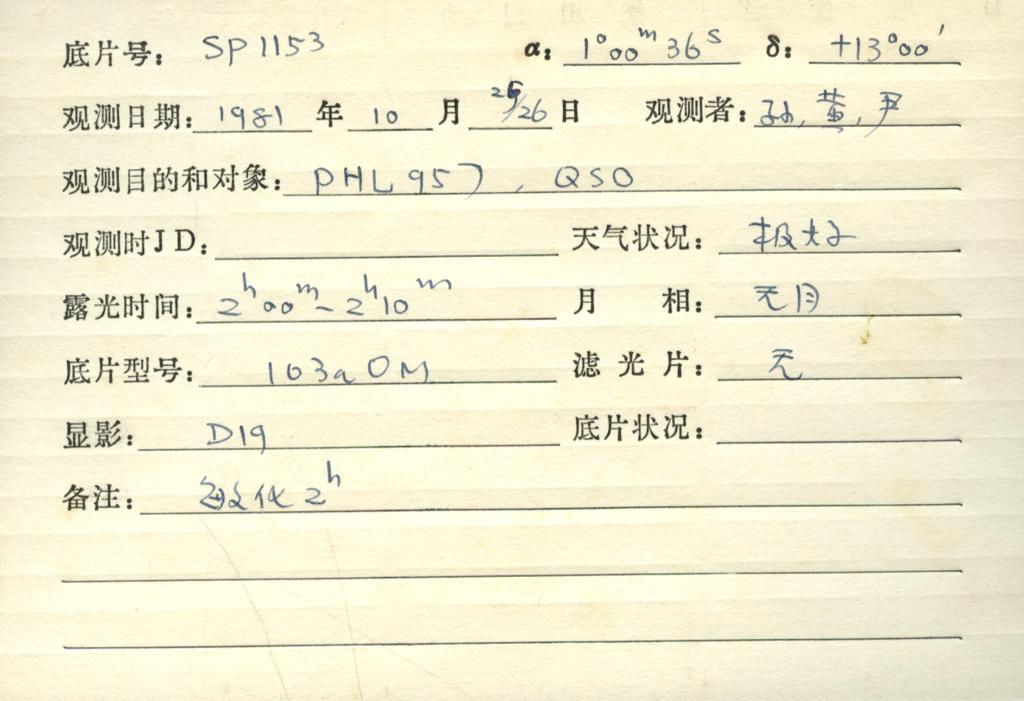 底片号: SP1153 α: 1°00ᵐ36ˢ δ: +13°00′
观测日期: 1981 年 10 月 25/26 日 观测者: 孙,董,尹
观测目的和对象: PHL 957, QSO
观测时JD: 天气状况: 极好
露光时间: 2ʰ00ᵐ~2ʰ10ᵐ 月 相: 无月
底片型号: 103aOM 滤光片: 无
显影: D19 底片状况:
备注: 敏化2ʰ